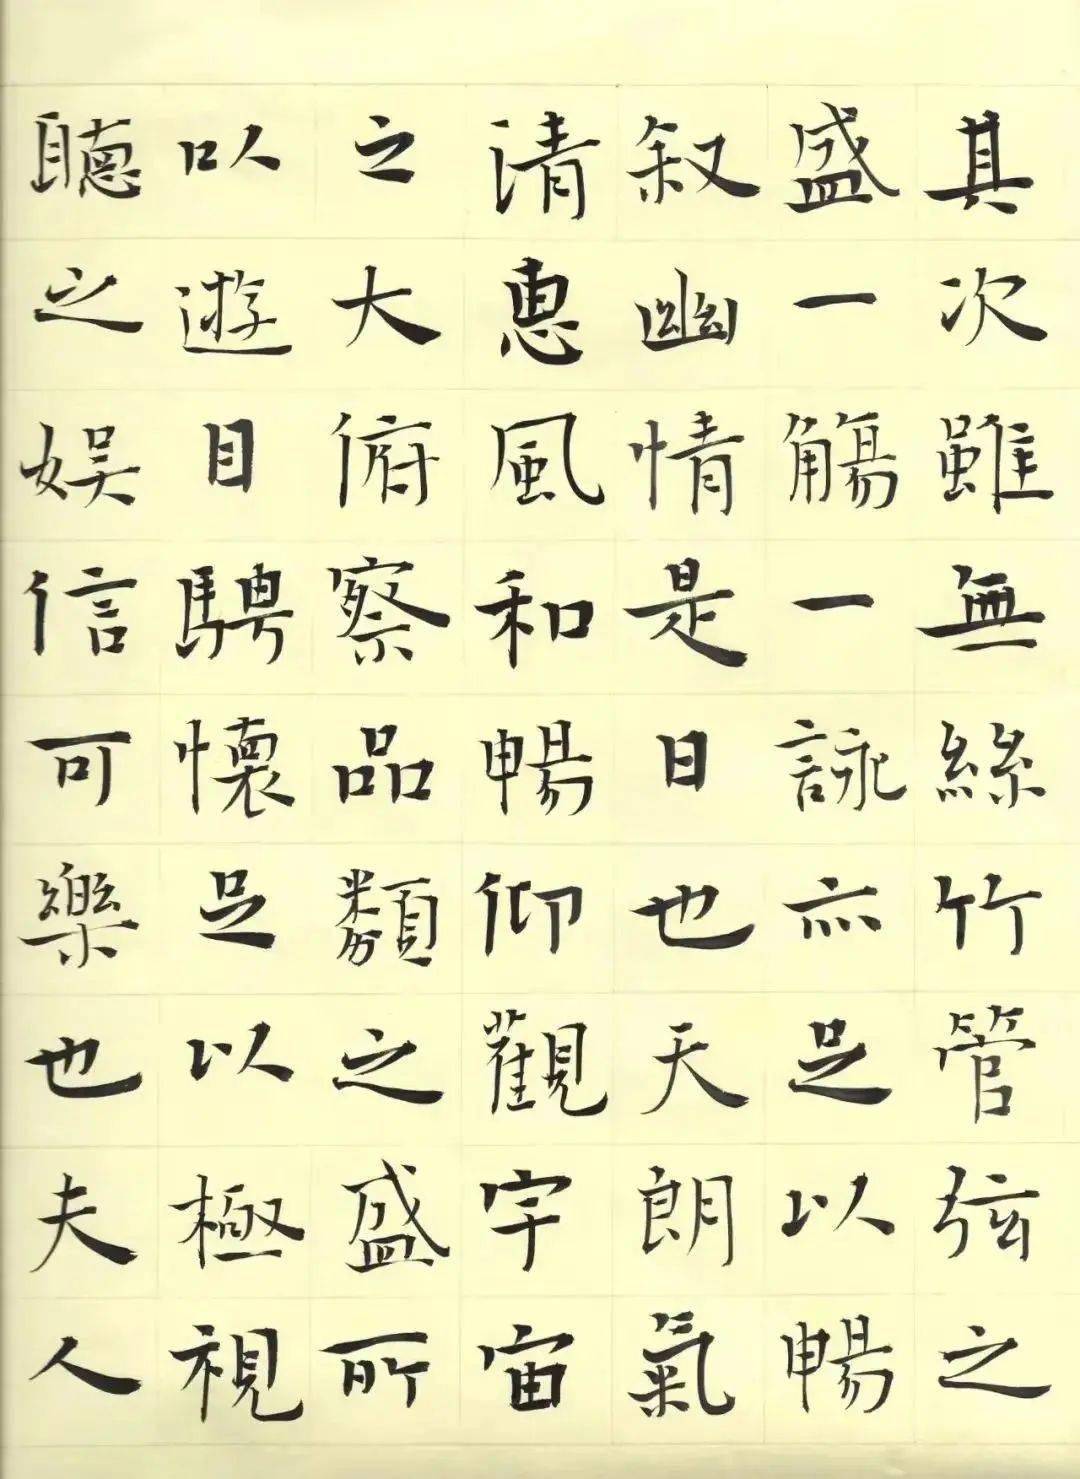 其次雖無絲竹管弦之
盛一觴一詠亦足以暢
叙幽情是日也天朗氣
清惠風和暢仰觀宇宙
之大俯察品類之盛所
以遊目騁懷足以極視
聽之娱信可樂也夫人